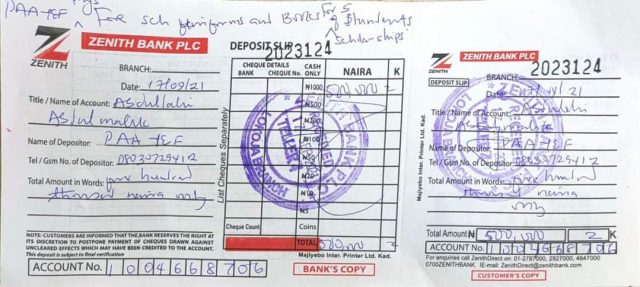 PAA YEF
For sch Uniforms and Books For 5 Students
Scholarships
ZENITH BANK PLC
ZENITH
BRANCH:
Date: 17/09/21
Title / Name of Account: Abdullahi
Abdulmalik
Name of Depositor: PAA YEF
Tel / Gsm No. of Depositor:
Total Amount in Words: hundred
thousand naira only
NOTE: CUSTOMERS ARE INFORMED THAT THE BANK RESERVES THE RIGHT AT
ITS DISCRETION TO POSTPONE PAYMENT OF CHEQUES DRAWN AGAINST
UNCLEARED EFFECTS WHICH MAY HAVE BEEN CREDITED TO THE ACCOUNT.
This deposit is subject to final verification
ACCOUNT No. 1004668706
DEPOSIT SLIP
2023124
CHEQUE DETAILS
BANK
CHEQUE No.
CASH ONLY
NAIRA
K
List Cheques Separately
₦1000
₦500
₦200
₦100
₦50
₦5
Cheque Count
Coins
TOTAL 500,000
Majiyebo Inter. Printer Ltd. Kad.
BANK'S COPY
ZENITH BANK PLC
TELLER
Majiyebo Inter. Printer Ltd. Kad.
ZENITH BANK PLC
ZENITH
2023124
DEPOSIT SLIP
BRANCH:
Date: /21
Title / Name of Account:
Name of Depositor:
PAA YEF
Tel / Gsm No. of Depositor:
Total Amount in Words: hundred
thousand naira
only
Total Amount ₦ 500,000 K
ACCOUNT No. 1004668706
For enquiries call ZenithDirect on 01-2787000, 2927000, 4647000
0700ZENITHBANK. E-mail: ZenithDirect@zenithbank.com
CUSTOMER'S COPY